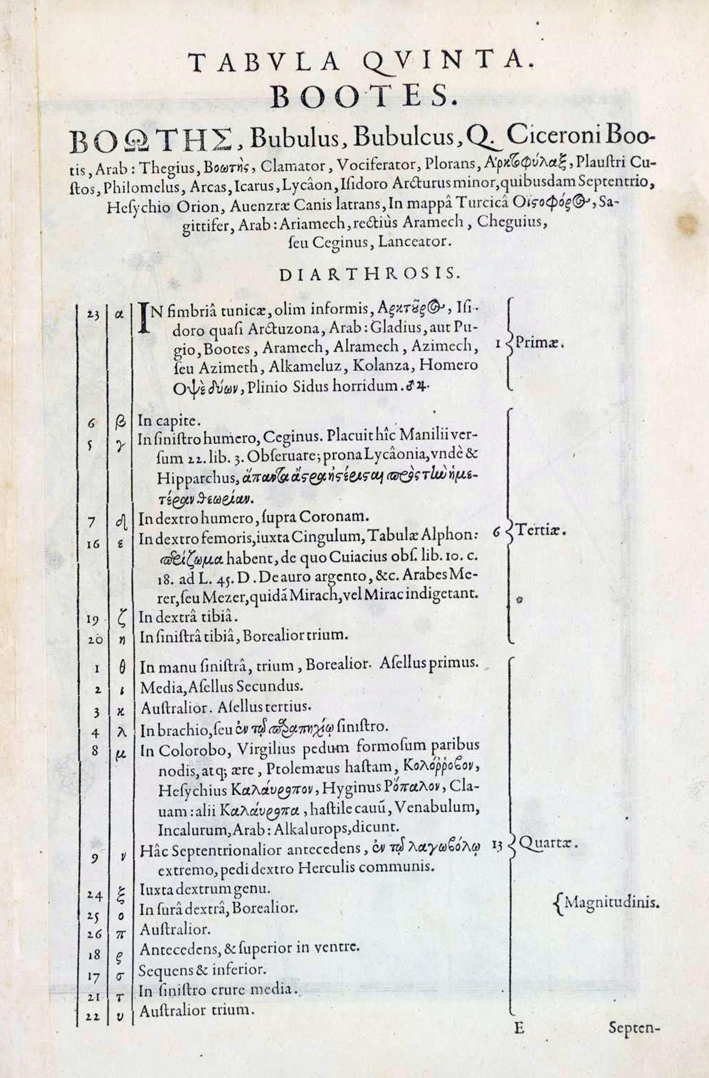 TABVLA QVINTA.
BOOTES.
ΒΟΩΤΗΣ, Bubulus, Bubulcus, Q. Ciceroni Boo-
tis, Arab: Thegius, Βοωτὴς, Clamator, Vociferator, Plorans, Ἀρκτοφύλαξ, Plauſtri Cu-
ſtos, Philomelus, Arcas, Icarus, Lycâon, Iſidoro Arcturus minor, quibusdam Septentrio,
Heſychio Orion, Auenzræ Canis latrans, In mappâ Turcicâ Οἰστοφόρος, Sa-
gittifer, Arab: Ariamech, rectiùs Aramech, Cheguius,
ſeu Ceginus, Lanceator.
DIARTHROSIS.
23 α IN fimbriâ tunicæ, olim informis, Ἀρκτοῦρος, Iſi-
doro quaſi Arctuzona, Arab: Gladius, aut Pu-
gio, Bootes, Aramech, Alramech, Azimech, 1 Primæ.
ſeu Azimeth, Alkameluz, Kolanza, Homero
Ὀψὲ δύων, Plinio Sidus horridum. ♂ ♃.
6 β In capite.
5 γ In ſiniſtro humero, Ceginus. Placuit hîc Manilii ver-
ſum 22. lib. 3. Obſeruare; prona Lycâonia, vndè &
Hipparchus, ἅπαντα ἄστρα ἠστέρισται πρὸς τὴν ἡμε-
τέραν θεωρίαν.
7 δ In dextro humero, ſupra Coronam.
16 ε In dextro femoris, iuxta Cingulum, Tabulæ Alphon: 6 Tertiæ.
πρίζωμα habent, de quo Cuiacius obſ. lib. 10. c.
18. ad L. 45. D. De auro argento, &c. Arabes Me-
rer, ſeu Mezer, quidã Mirach, vel Mirac indigetant.
19 ζ In dextrâ tibiâ.
20 η In ſiniſtrâ tibiâ, Borealior trium.
1 θ In manu ſiniſtrâ, trium, Borealior. Aſellus primus.
2 ι Media, Aſellus Secundus.
3 κ Auſtralior. Aſellus tertius.
4 λ In brachio, ſeu ἐν τῷ παραπηχίῳ ſiniſtro.
8 μ In Colorobo, Virgilius pedum formoſum paribus
nodis, atq; ære, Ptolemæus haſtam, Κολόῤῥοβον,
Heſychius Καλάυροπον, Hyginus Ῥόπαλον, Cla-
uam: alii Καλάυροπα, haſtile cauũ, Venabulum,
Incalurum, Arab: Alkalurops, dicunt.
9 ν Hâc Septentrionalior antecedens, ἐν τῷ λαγωβόλῳ 13 Quartæ.
extremo, pedi dextro Herculis communis.
24 ξ Iuxta dextrum genu.
25 ο In ſurâ dextrâ, Borealior. Magnitudinis.
26 π Auſtralior.
18 ρ Antecedens, & ſuperior in ventre.
17 σ Sequens & inferior.
21 τ In ſiniſtro crure media.
22 υ Auſtralior trium.
E Septen-